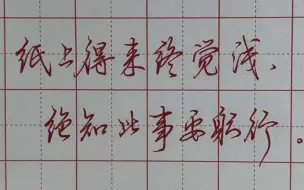 纸上得来终觉浅、
绝知此事要躬行。